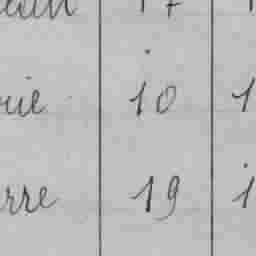 17
rie 10 1
rre 19 1